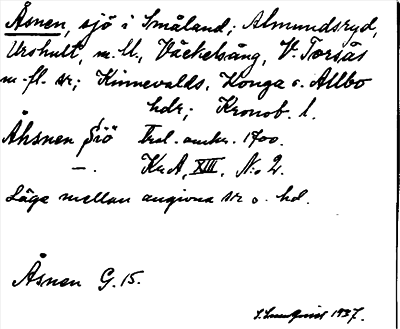 Åsnen, sjö i Småland; Almundsryd,
Urshult, m.fl., Väckelsång, V. Torsås
m.fl. sr; Kinnevalds, Konga o. Allbo
hdr; Kronob. l.
Åhsnen Siö Trol. omkr. 1700.
—. KrA, XIII, No 2.
Läge mellan angivna sr o. hd.
Åsnen G. 15.
1937.